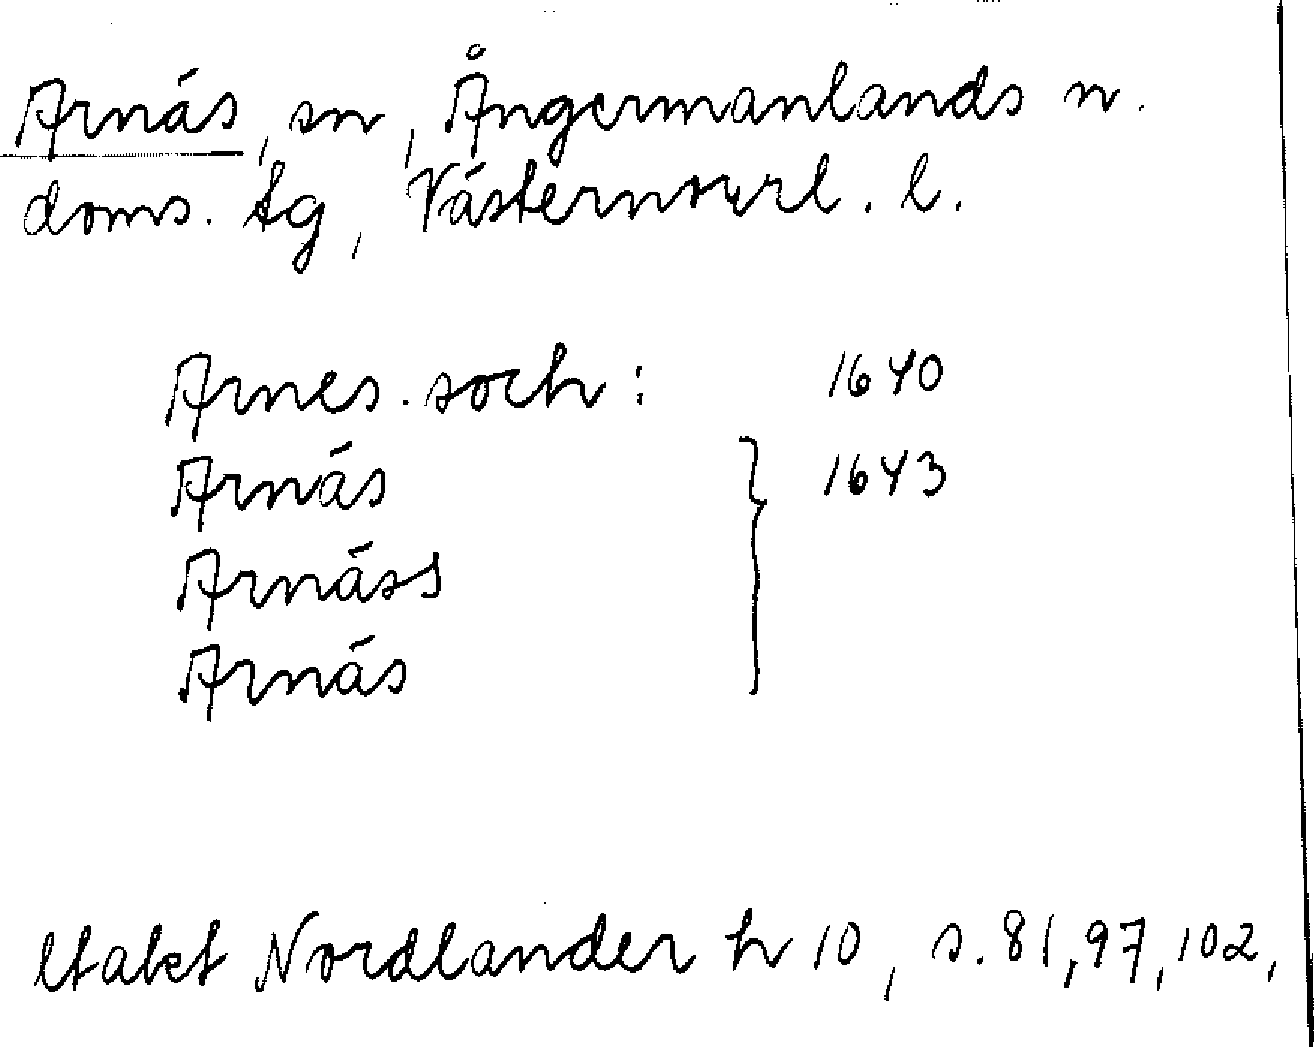 Arnäs, sn, Ångermanlands n.
doms. tg, Västernorrl. l.
Arnes. soch: 1640
Arnäs } 1643
Arnäss
Arnäs
Utakt Nordlander h 10, s. 81, 97, 102,